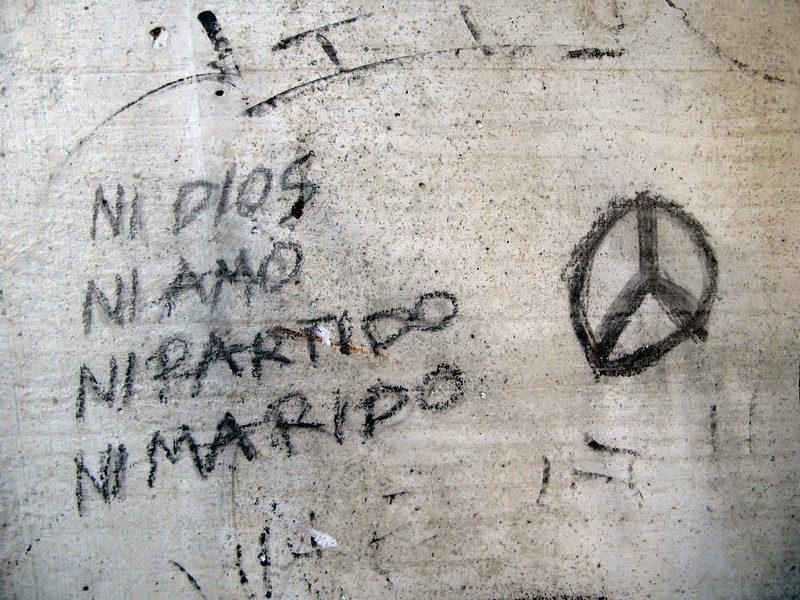 NI DIOS
NI AMO
NI PARTIDO
NI MARIDO